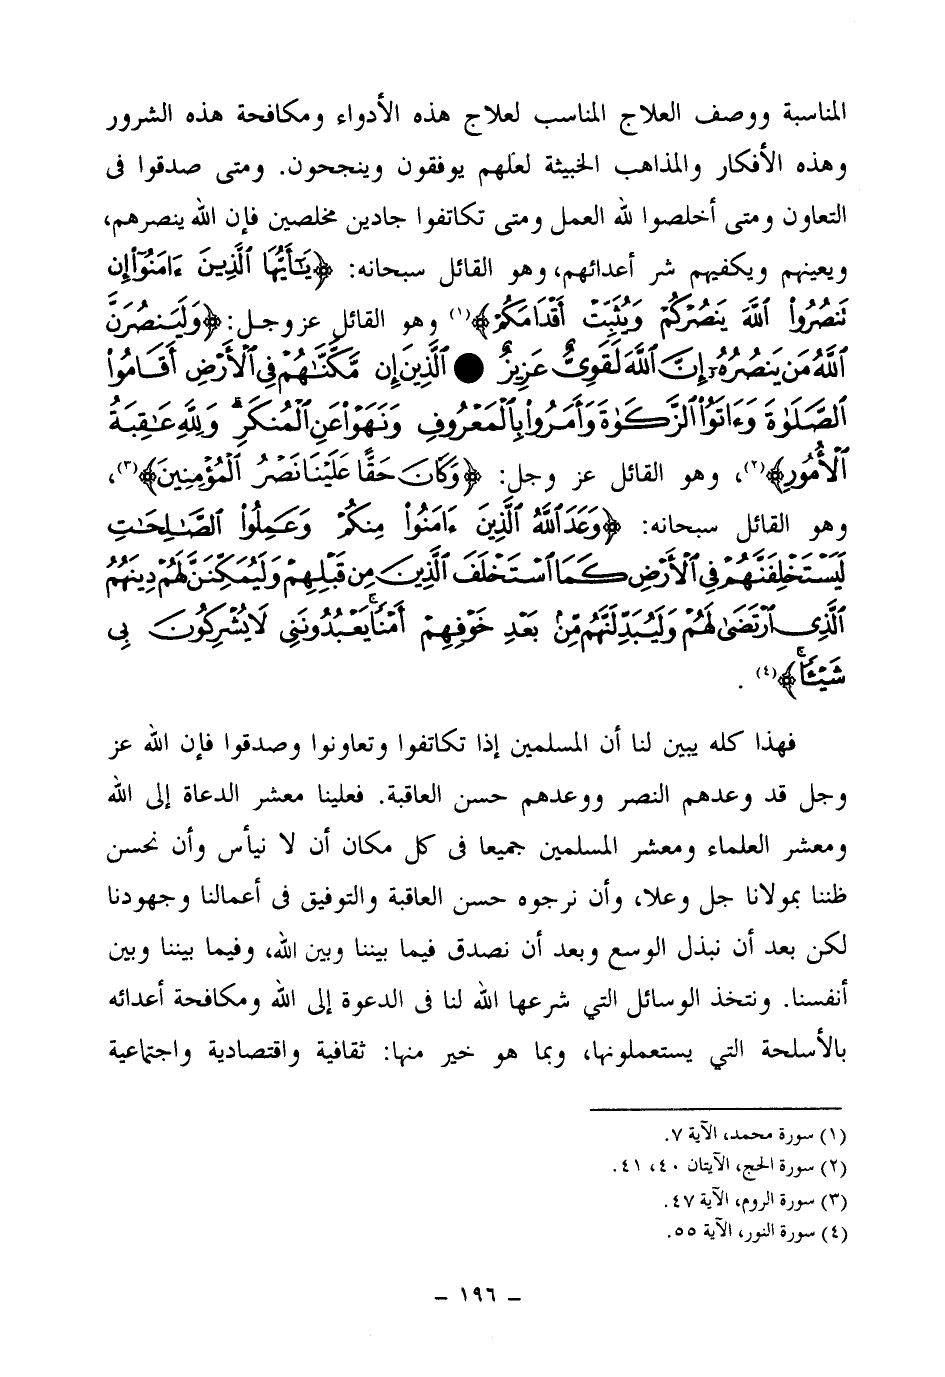 المناسبة ووصف العلاج المناسب لعلاج هذه الأدواء ومكافحة هذه الشرور
وهذه الأفكار والمذاهب الخبيثة لعلهم يوفقون وينجحون. ومتى صدقوا فى
التعاون ومتى أخلصوا لله العمل ومتى تكاتفوا جادين مخلصين فإن الله ينصرهم،
ويعينهم ويكفيهم شر أعدائهم، وهو القائل سبحانه: ﴿يَٰٓأَيُّهَا ٱلَّذِينَ ءَامَنُوٓا۟ إِن
تَنصُرُوا۟ ٱللَّهَ يَنصُرْكُمْ وَيُثَبِّتْ أَقْدَامَكُمْ﴾(١) وهو القائل عز وجل: ﴿وَلَيَنصُرَنَّ
ٱللَّهُ مَن يَنصُرُهُۥٓ إِنَّ ٱللَّهَ لَقَوِىٌّ عَزِيزٌ ● ٱلَّذِينَ إِن مَّكَّنَّٰهُمْ فِى ٱلْأَرْضِ أَقَامُوا۟
ٱلصَّلَوٰةَ وَءَاتَوُا۟ ٱلزَّكَوٰةَ وَأَمَرُوا۟ بِٱلْمَعْرُوفِ وَنَهَوْا۟ عَنِ ٱلْمُنكَرِ ۗ وَلِلَّهِ عَٰقِبَةُ
ٱلْأُمُورِ﴾(٢)، وهو القائل عز وجل: ﴿وَكَانَ حَقًّا عَلَيْنَا نَصْرُ ٱلْمُؤْمِنِينَ﴾(٣)،
وهو القائل سبحانه: ﴿وَعَدَ ٱللَّهُ ٱلَّذِينَ ءَامَنُوا۟ مِنكُمْ وَعَمِلُوا۟ ٱلصَّٰلِحَٰتِ
لَيَسْتَخْلِفَنَّهُمْ فِى ٱلْأَرْضِ كَمَا ٱسْتَخْلَفَ ٱلَّذِينَ مِن قَبْلِهِمْ وَلَيُمَكِّنَنَّ لَهُمْ دِينَهُمُ
ٱلَّذِى ٱرْتَضَىٰ لَهُمْ وَلَيُبَدِّلَنَّهُم مِّنۢ بَعْدِ خَوْفِهِمْ أَمْنًا ۚ يَعْبُدُونَنِى لَا يُشْرِكُونَ بِى
شَيْـًٔا ۚ﴾(٤) .
فهذا كله يبين لنا أن المسلمين إذا تكاتفوا وتعاونوا وصدقوا فإن الله عز
وجل قد وعدهم النصر ووعدهم حسن العاقبة. فعلينا معشر الدعاة إلى الله
ومعشر العلماء ومعشر المسلمين جميعا فى كل مكان أن لا نيأس وأن نحسن
ظننا بمولانا جل وعلا، وأن نرجوه حسن العاقبة والتوفيق فى أعمالنا وجهودنا
لكن بعد أن نبذل الوسع وبعد أن نصدق فيما بيننا وبين الله، وفيما بيننا وبين
أنفسنا. ونتخذ الوسائل التي شرعها الله لنا فى الدعوة إلى الله ومكافحة أعدائه
بالأسلحة التي يستعملونها، وبما هو خير منها: ثقافية واقتصادية واجتماعية
(١) سورة محمد، الآية ٧.
(٢) سورة الحج، الآيتان ٤٠، ٤١.
(٣) سورة الروم، الآية ٤٧.
(٤) سورة النور، الآية ٥٥.
- ١٩٦ -